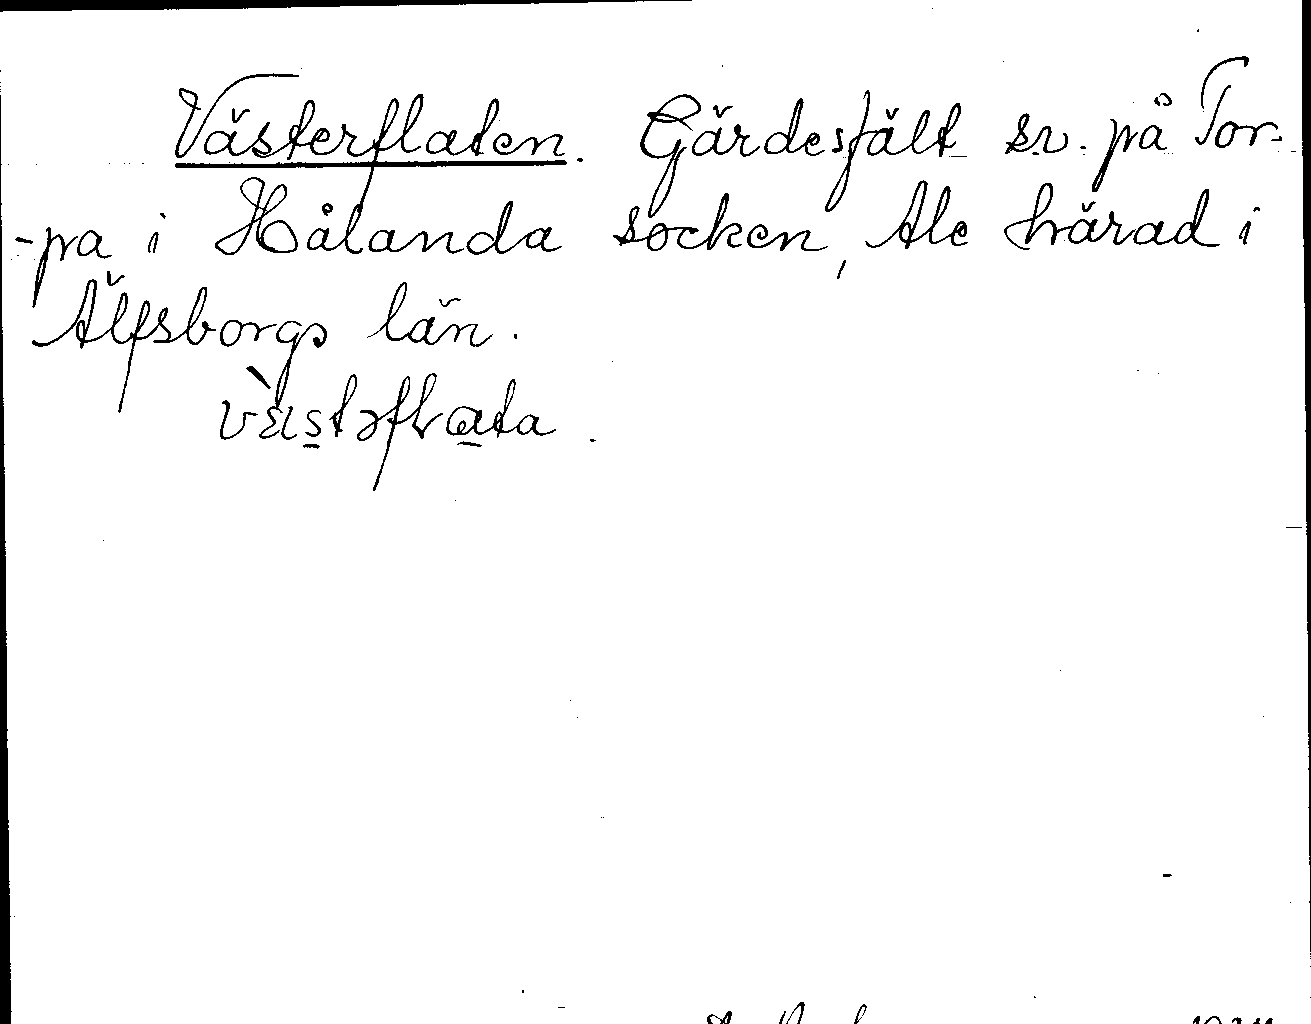 Västerflaten. Gärdesfält sv. på Tor-
-pa i Hålanda socken, Ale härad i
Älfsborgs län.